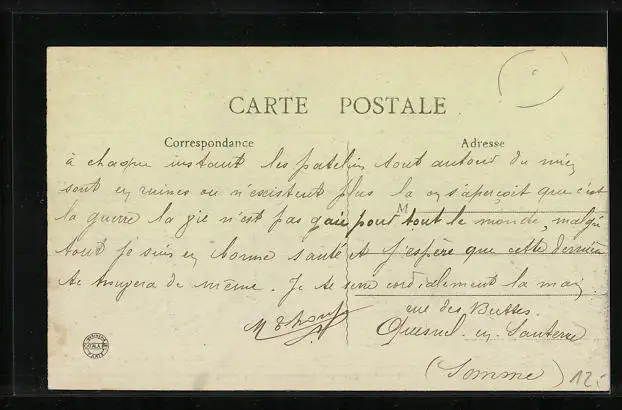 CARTE POSTALE
Correspondance
Adresse
à chaque instant les patelins tout autour du mien
sont en ruines ou n'existent plus la on s'aperçoit que c'est
la guerre la vie n'est pas gaie pour tout le monde, malgré
M
tout je suis en bonne santé et j'espère que cette dernière
te trouvera de même. Je te serre cordialement la main
rue des Buttes
Quesnel en Santerre
(Somme)
12